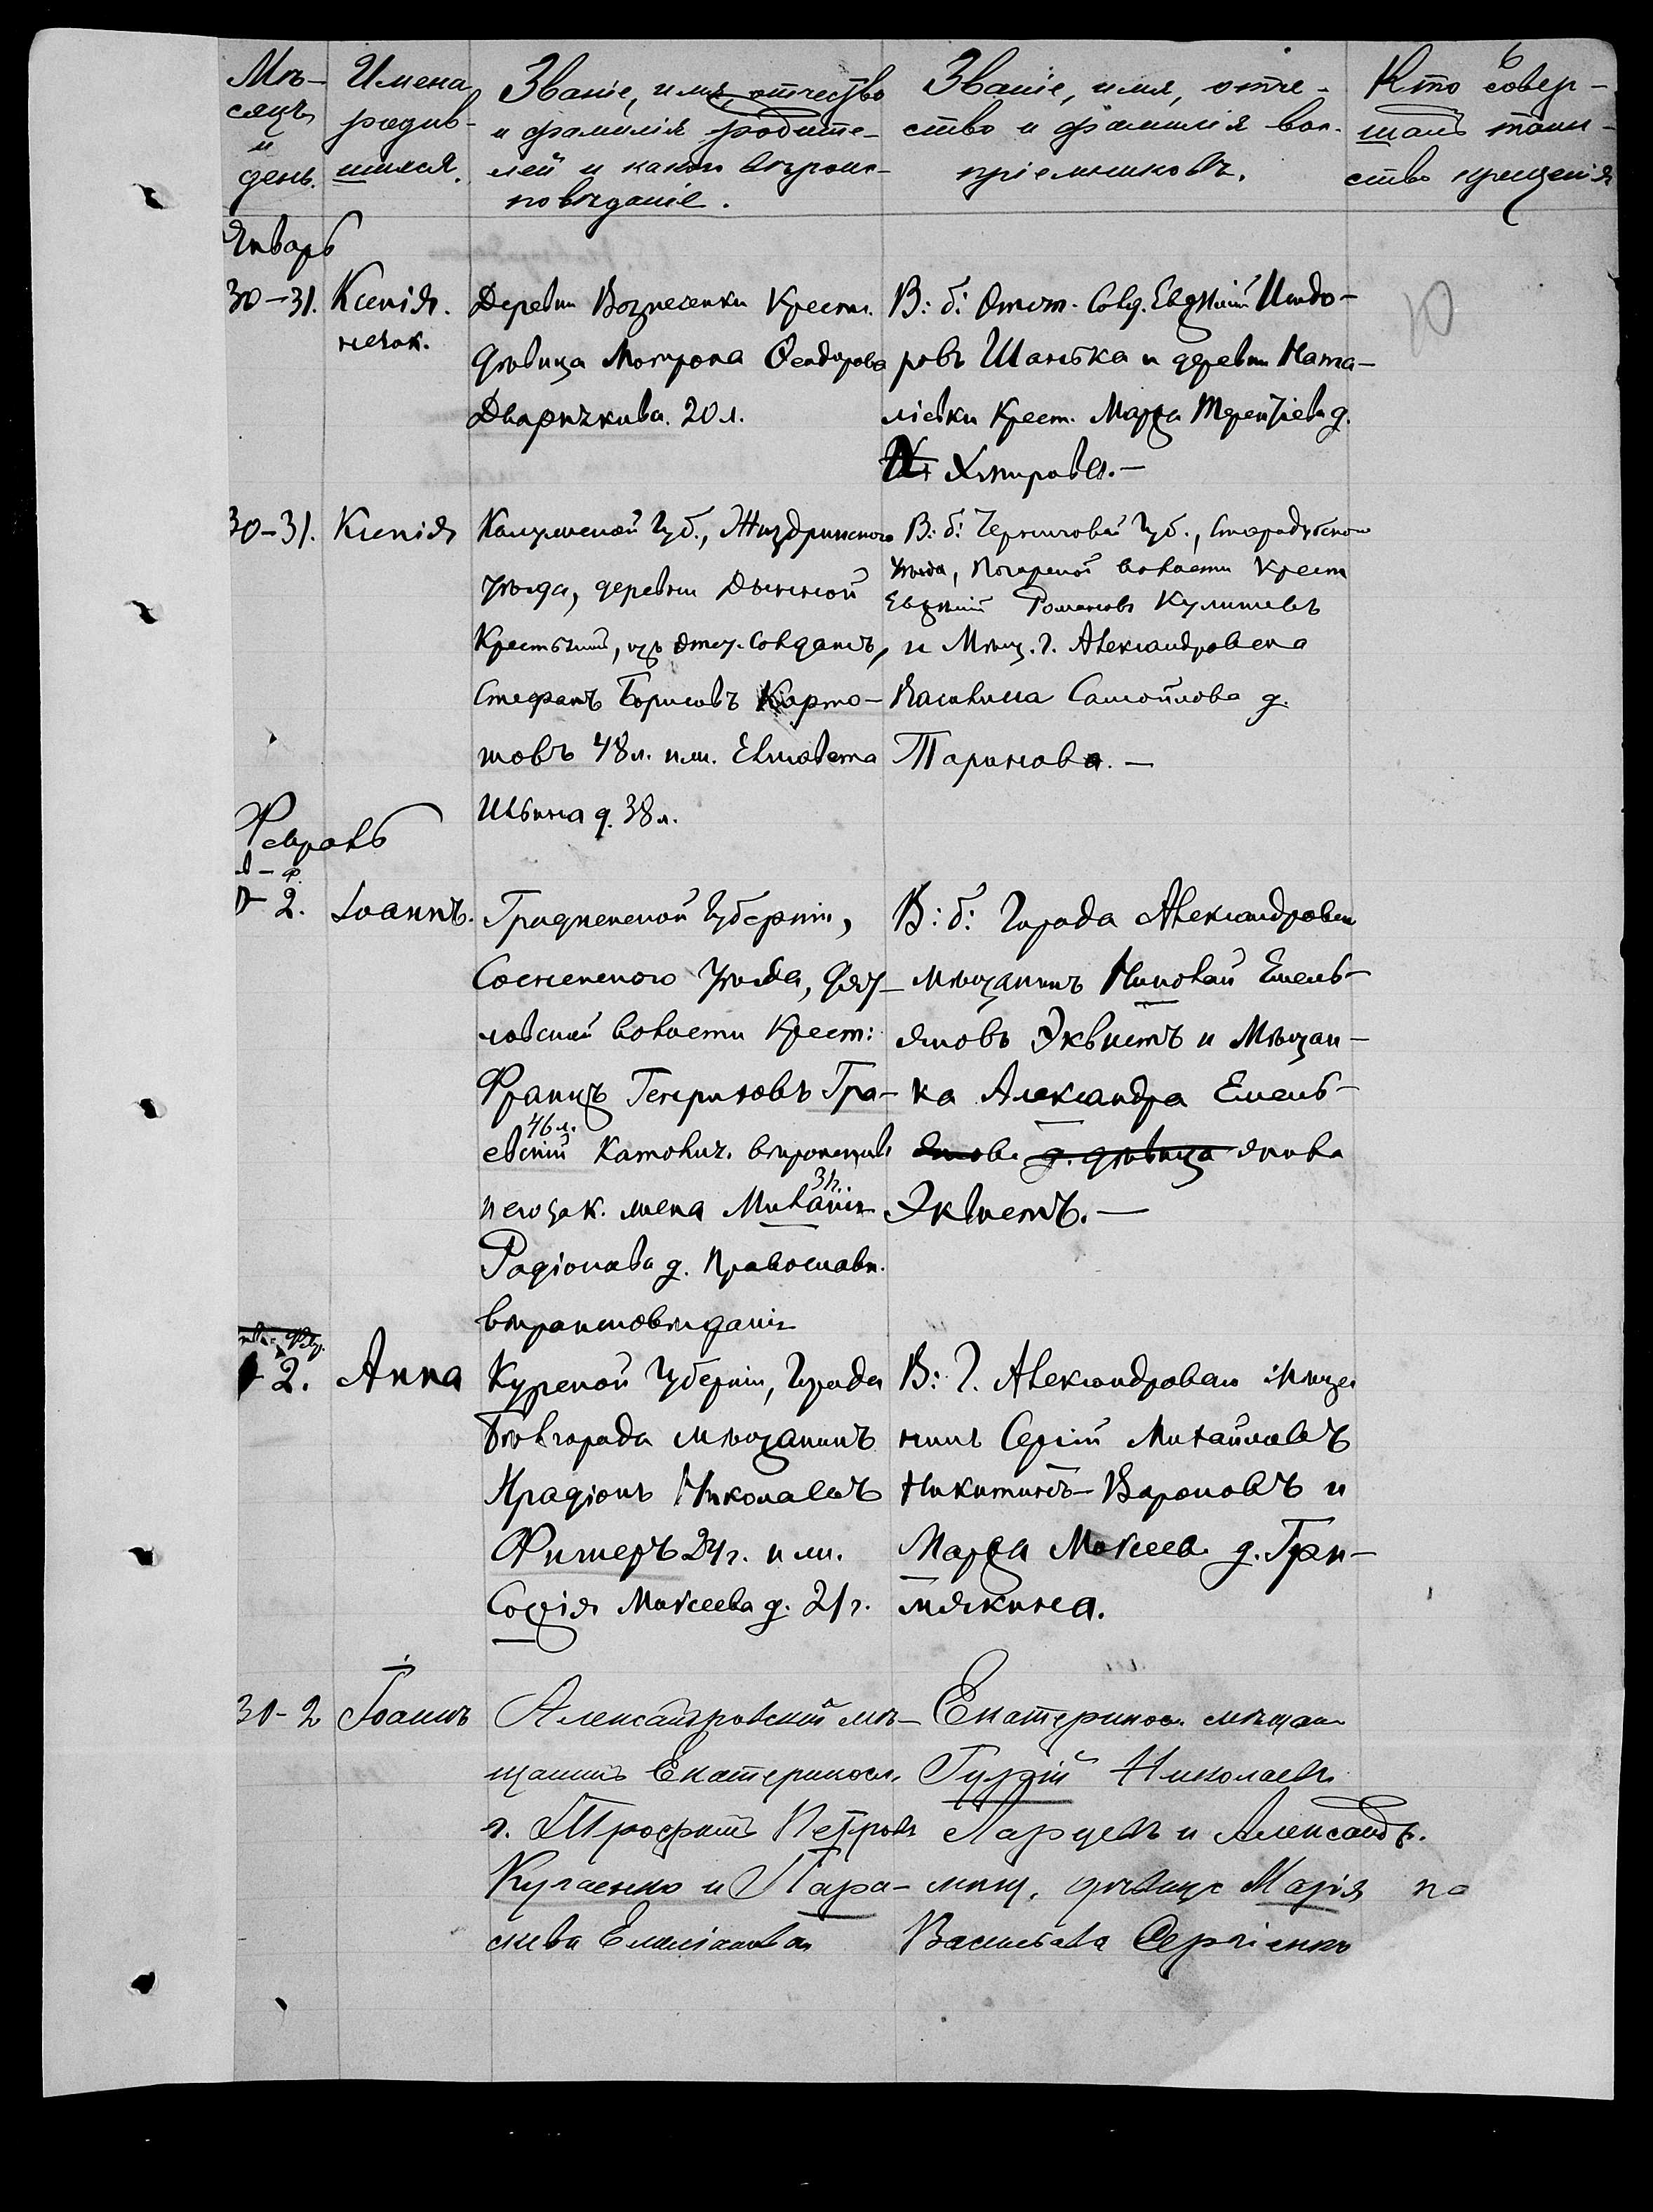 6
Мѣ-
сяцъ
и
день.
Имена
родив-
шихся.
Званіе, имя, отчество
и фамилія родите-
лей и какого вѣроис-
повѣданіе.
Званіе, имя, отче-
ство и фамилія вос-
пріемниковъ.
Кто совер-
шалъ таин-
ство крещенія
Январь
30-31.
Ксенія.
незак.
Деревни Вознесенки Крест.
дѣвица Мотрона Ѳеодорова
20 л.
В: б: Отст. Солд. Евдокий Исидо-
ровъ Шанька и деревни Ната-
ліевки Крест. Марѳа Терентіева д.
Хитрова.-
30-31.
Ксенія
Калужской Губ., Жиздринского
уѣзда, деревни
Крестьянинъ, изъ Отст. Солдатъ,
Стефанъ Борисовъ Карто-
шовъ 48 л. и ж. Елисавета
Ильина д. 38 л.
В: б: Черниговой Губ., Стародубского
уѣзда, Погарской волости Крест
Романовъ Кулишевъ
и Мѣщ. г. Александровска
Василиса Самойлова д.
Таринова.-
Февраль
1-2.
Іоаннъ.
Гродненской Губерніи,
уѣзда,
волости Крест:
Францъ Генриховъ Гра-
46 л.
евскій Католич. вѣроисповѣ
и егозак. жена Миланія
Родіонова д. Православн.
вѣраисповѣданія
В: б: Города Александровск
мѣщанинъ Николай Емель-
яновъ Эквистъ и Мѣщан-
ка Александра Емель-
д. дѣвица янова
Эквистъ.-
1-2.
Анна
Курской Губерніи, Города
Бѣлгорода мѣщанинъ
Иродіонъ Николаевъ
Фишеръ 24 г. и ж.
Софія Моисеева д. 21 г.
В: Г. Александровск Мѣща
нинъ Сергій Михайловъ
Никитинъ-Вороновъ и
Марѳа Моисеева д. Гри-
мякина.
31-2
Іоаннъ
Александровскій мѣ-
щанинъ Екатеринос.
г. Трофимъ Петровъ
Кугаенко и Пара-
скева Емиліанова
Екатеринос. мѣщан
Гурій Николаевъ
Ларцевъ и Александр.
мѣщ. дѣвица Марія
Васильева Сергіенко
по